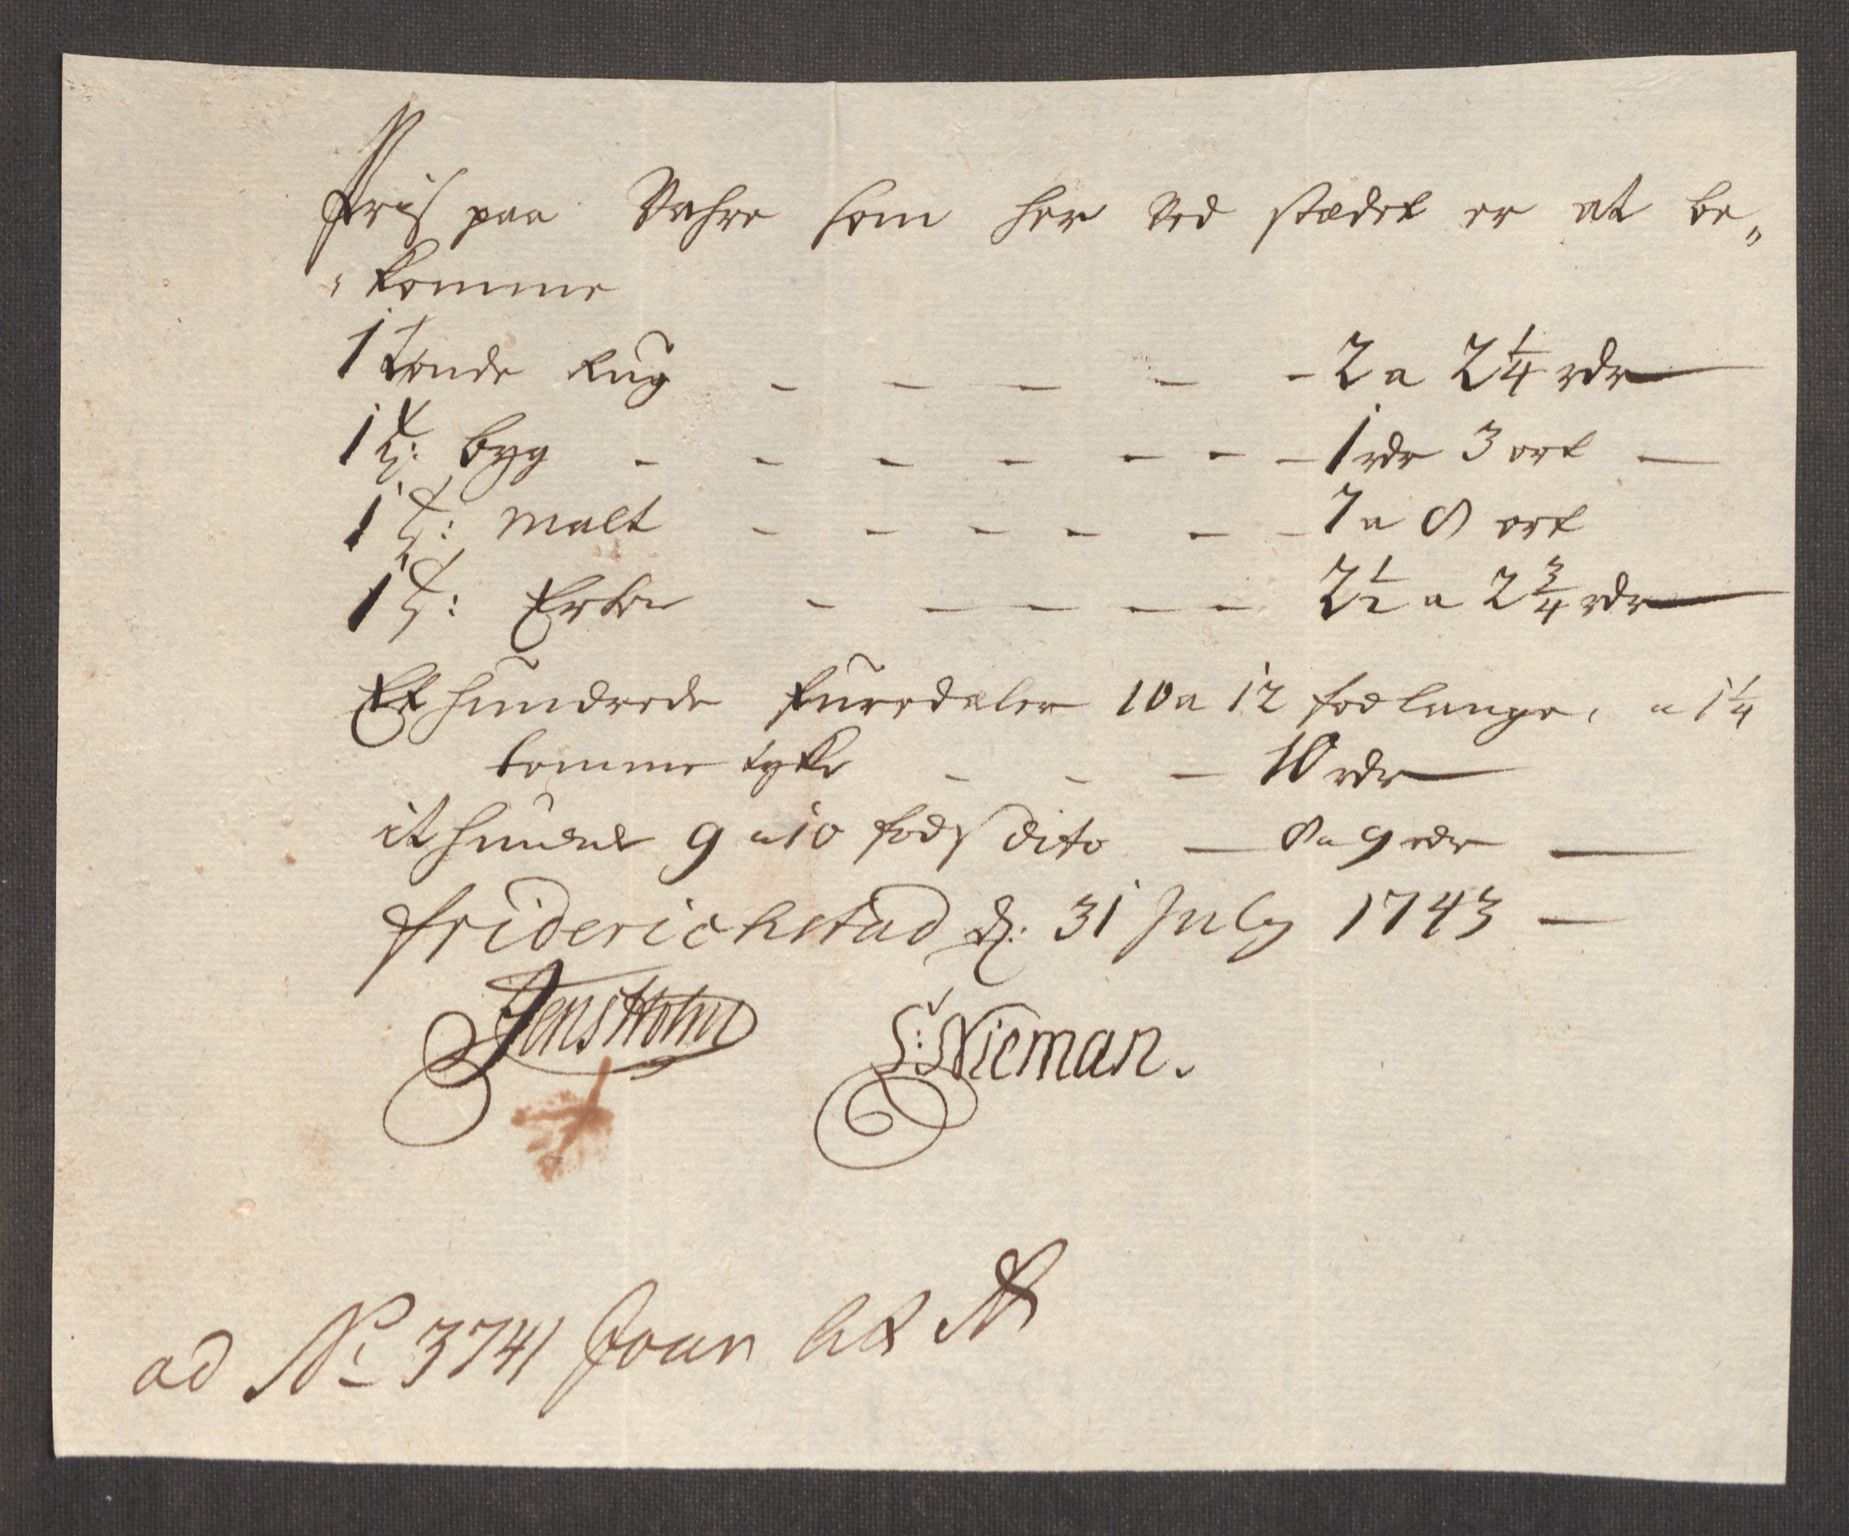 Priis paa Vahre som her ved stædet er at be„
„komme
1 tønde Rug - - - - - 2 a 2 1/4 rdr
1 t: byg - - - - - - - 1 rdr 3 ort —
1 t: Malt - - - - - - 7 a 8 ort
1 t: Erter - - - - - 2 1/2 a 2 3/4 rdr
Et hundrede furedæler 10 a 12 fod lange, a 1 1/4
tomme tyke - - - 10 rdr
it hundrede 9 a 10 fods dito — 8 a 9 rdr —
friderichstad d: 31 July 1743 —
Jens Holm S: Nieman.
ad No 3741